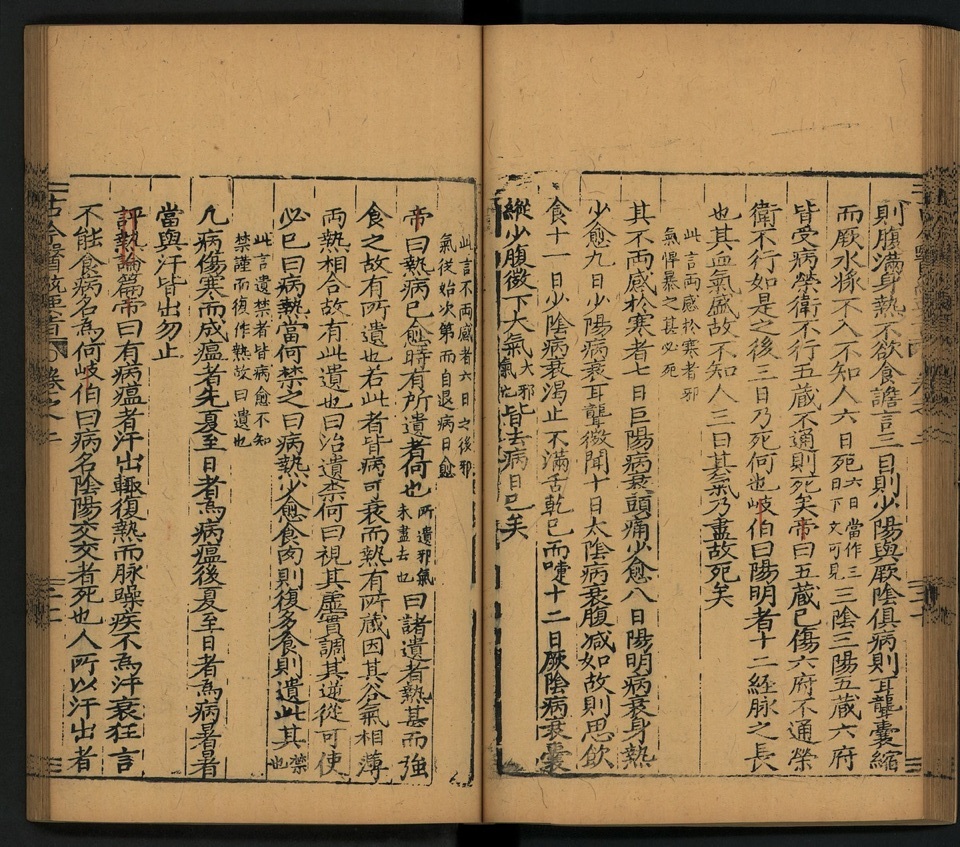 則腹滿身熱不欲食譫言三日則少陽與厥陰俱病則耳聾囊縮
而厥水漿不入不知人六日死六日當作三日下文可見三陰三陽五藏六府
皆受病榮衛不行五藏不通則死矣帝曰五藏已傷六府不通榮
衛不行如是之後三日乃死何也岐伯曰陽明者十二經脉之長
也其血氣盛故不知人三日其氣乃盡故死矣
此言兩感於寒者邪
氣悍暴之甚必死
其不兩感於寒者七日巨陽病衰頭痛少愈八日陽明病衰身熱
少愈九日少陽病衰耳聾微聞十日太陰病衰腹减如故則思飲
食十一日少陰病衰渴止不滿舌乾已而嚏十二日厥陰病衰囊
縱少腹微下大氣大邪氣也皆去病日已矣
此言不兩感者六日之後邪
氣從始次第而自退病日愈
帝曰熱病已愈時有所遺者何也所遺邪氣未盡去也曰諸遺者熱甚而強
食之故有所遺也若此者皆病可衰而熱有所藏因其谷氣相薄
兩熱相合故有此遺也曰治遺柰何曰視其虛實調其逆從可使
必已曰病熱當何禁之曰病熱少愈食肉則復多食則遺此其禁也
此言遺禁者皆病愈不知
禁謹而復作熱故曰遺也
凡病傷寒而成瘟者先夏至日者爲病瘟後夏至日者爲病暑暑
當與汗皆出勿止
評熱論篇帝曰有病瘟者汗出輙復熱而脉躁疾不爲汗衰狂言
不能食病名爲何岐伯曰病名陰陽交交者死也人所以汗出者